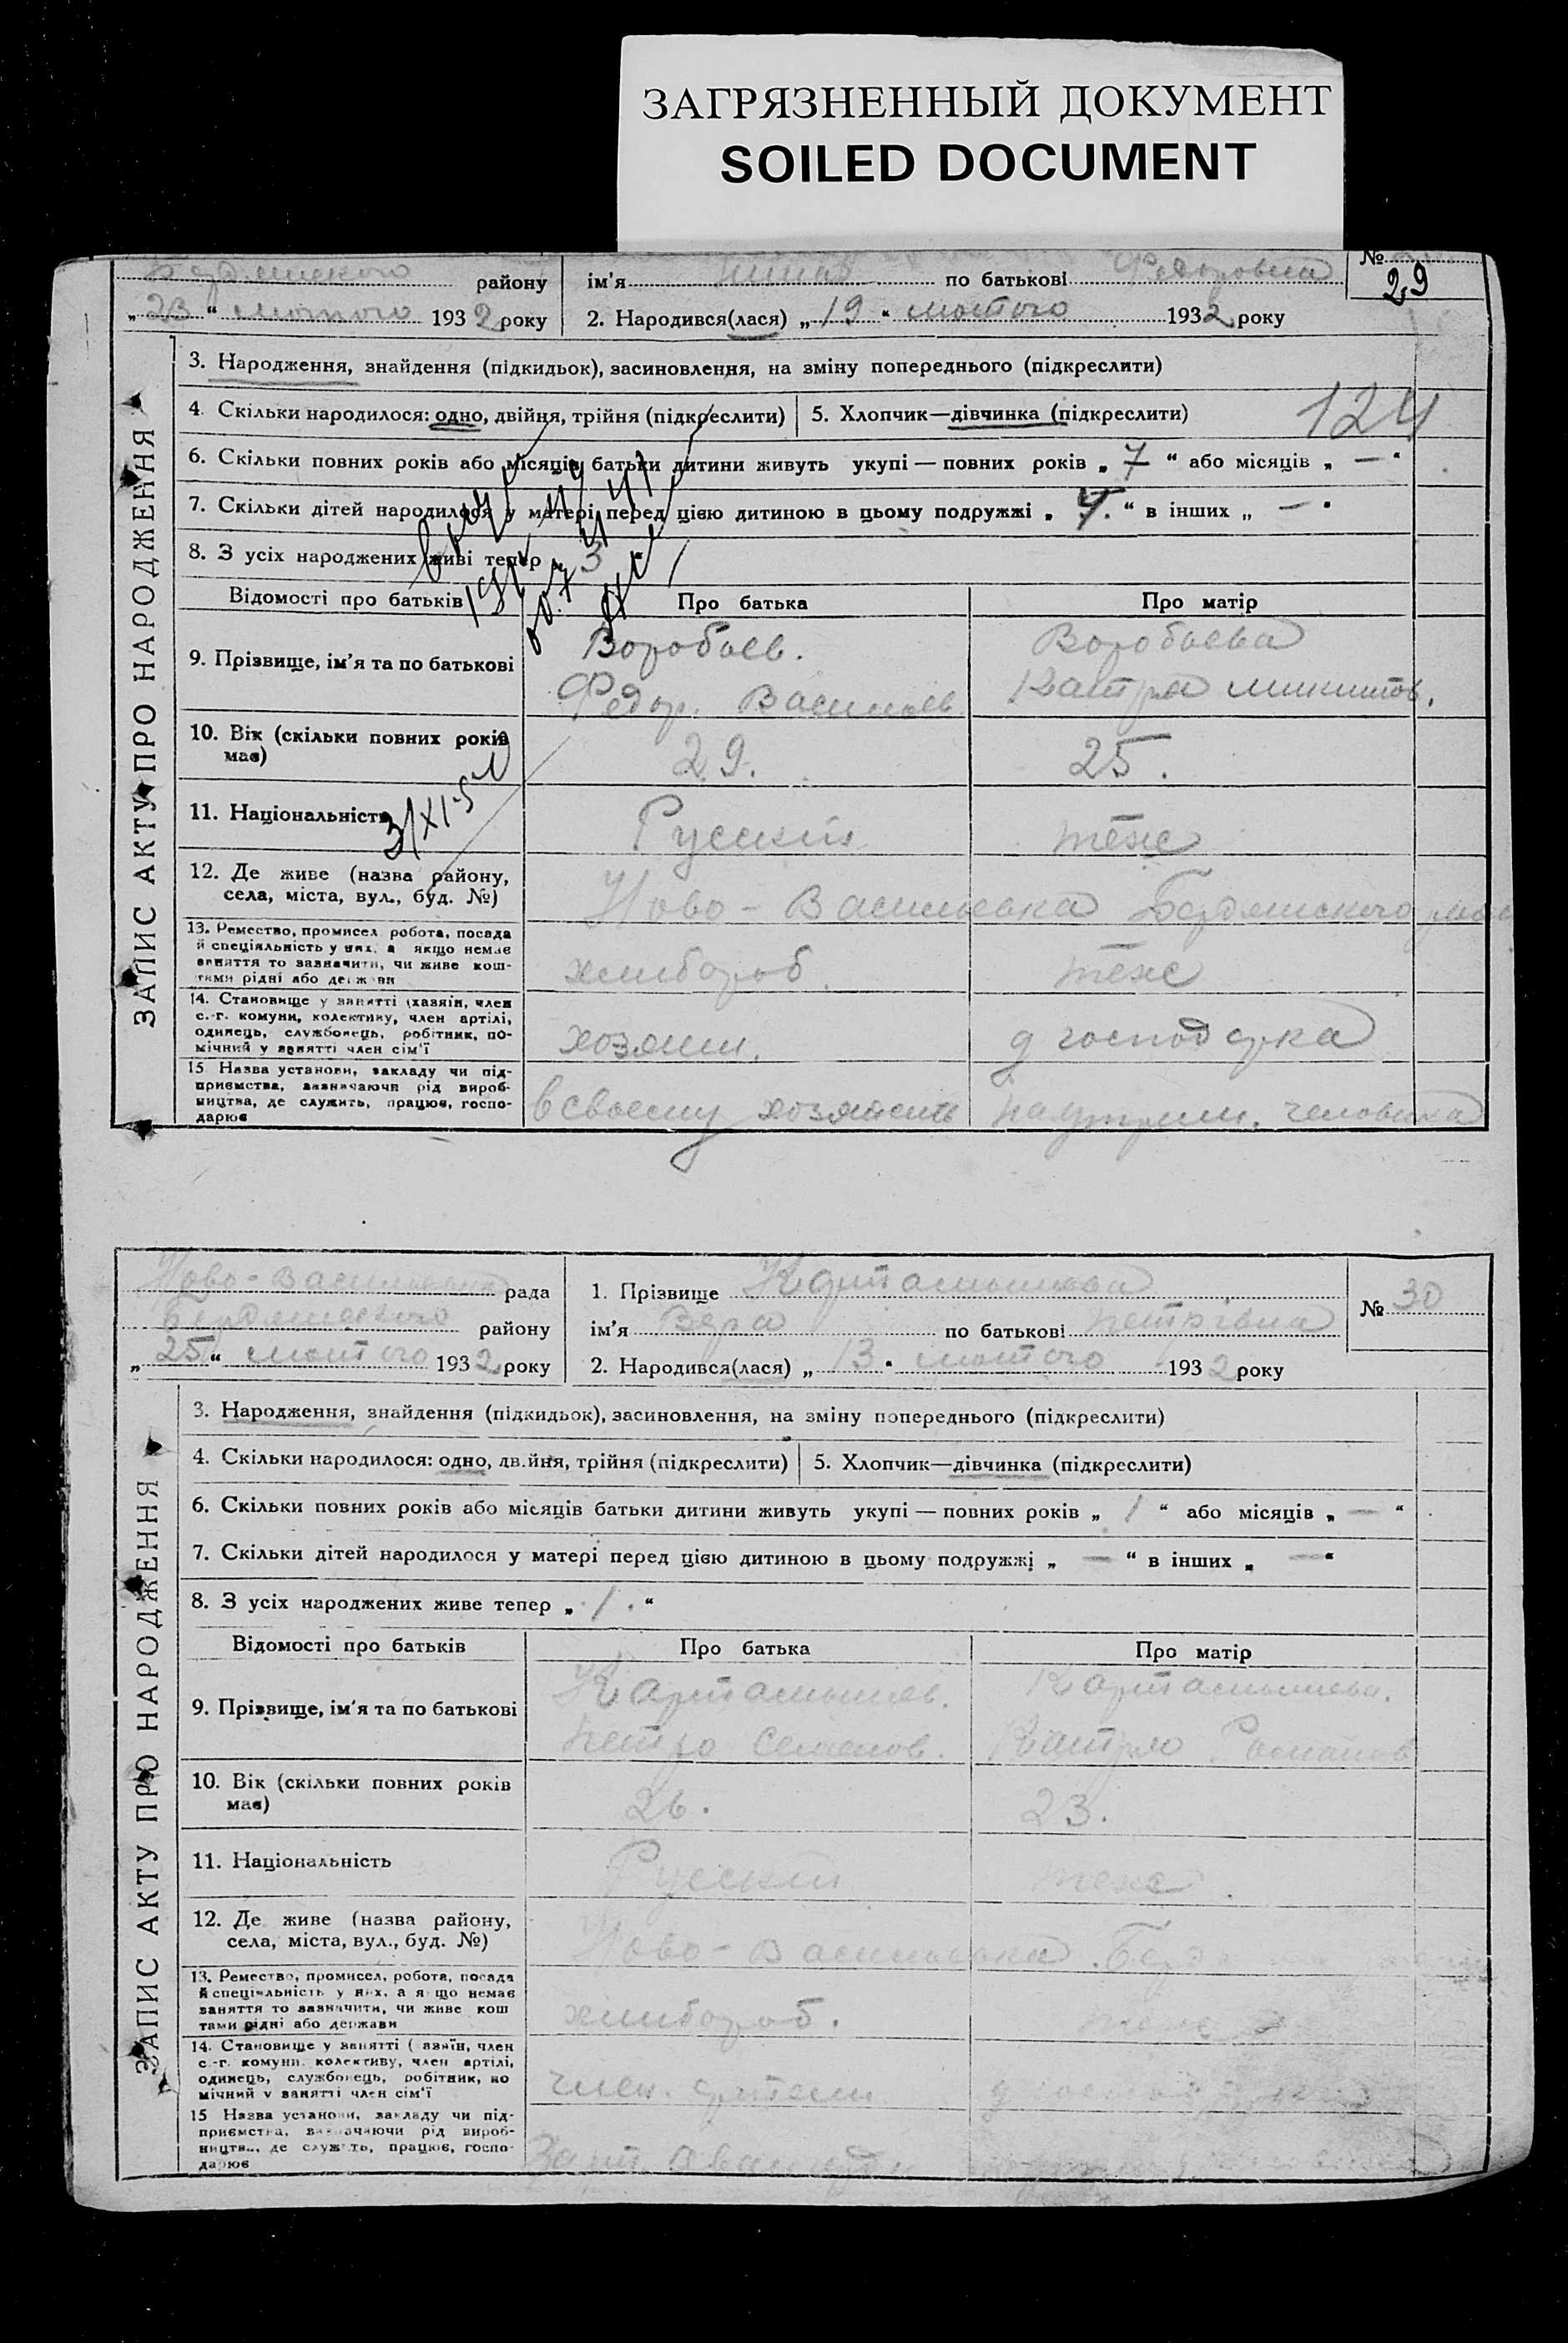 ЗАГРЯЗНЕННЫЙ ДОКУМЕНТ
SOILED DOCUMENT
Бердянского району ім'я по батькові Федоровна № 29
„ 23 “ лютого 1932 року 2. Народився(лася) „ 19 “ лютого 1932 року
ЗАПИС АКТУ ПРО НАРОДЖЕННЯ
3. Народження, знайдення (підкидьок), засиновлення, на зміну попереднього (підкреслити)
4. Скільки народилося: одно, двійня, трійня (підкреслити) 5. Хлопчик—дівчинка (підкреслити) 124
6. Скільки повних років або місяців батьки дитини живуть укупі — повних років „ 7 “ або місяців „ — “
7. Скільки дітей народилося у матері перед цією дитиною в цьому подружжі „ 4. “ в інших „ — “
8. З усіх народжених живі тепер „ 3
Відомості про батьків Про батька Про матір
9. Прізвище, ім'я та по батькові Воробьев. Воробьева
Федор. Васильев.
10. Вік (скільки повних років має) 29. 25.
3/XI-51
11. Національність Руський тоже
12. Де живе (назва району, села, міста, вул., буд. №) Ново-Васильевка Бердянского
13. Ремество, промисел робота, посада й спеціяльність у них, а якщо немає заняття то зазначити, чи живе коштами рідні або держави хлибороб. тоже
14. Становище у занятті (хазяїн, член с.-г. комуни, колективу, член артілі, одинець, службовець, робітник, помічний у занятті член сім'ї хозяин. д господарка
15 Назва установи, закладу чи підприємства, зазначаючи рід виробництва, де служить, працює, господарює в своему хозяйстві на утрим. человіка
Ново-Васильевка рада 1. Прізвище Карташышева № 30
Бердянского району ім'я Вера по батькові Петрівна
„ 25 “ лютого 1932 року 2. Народився(лася) „ 13 “ лютого 1932 року
ЗАПИС АКТУ ПРО НАРОДЖЕННЯ
3. Народження, знайдення (підкидьок), засиновлення, на зміну попереднього (підкреслити)
4. Скільки народилося: одно, двійня, трійня (підкреслити) 5. Хлопчик—дівчинка (підкреслити)
6. Скільки повних років або місяців батьки дитини живуть укупі — повних років „ 1 “ або місяців „ — “
7. Скільки дітей народилося у матері перед цією дитиною в цьому подружжі „ — “ в інших „ — “
8. З усіх народжених живе тепер „ 1. “
Відомості про батьків Про батька Про матір
9. Прізвище, ім'я та по батькові Карташышев. Карташышева.
Петро Семенов.
10. Вік (скільки повних років має) 26. 23.
11. Національність Руський тоже
12. Де живе (назва району, села, міста, вул., буд. №) Ново-Васильевка
13. Ремество, промисел, робота, посада й спеціяльність у них, а якщо немає заняття то зазначити, чи живе коштами рідні або держави хлибороб. тоже
14. Становище у занятті (хазяїн, член с.-г. комуни, колективу, член артілі, одинець, службовець, робітник, помічний у занятті член сім'ї член. артели
15 Назва установи, закладу чи підприємства, зазначаючи рід виробництва, де служить, працює, господарює